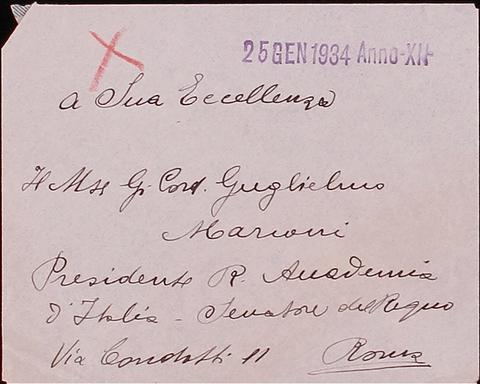 25 GEN 1934 Anno-XII
A Sua Eccellenza
Il M.se Gr. Cord. Guglielmo
Marconi
Presidente R. Accademia
d'Italia - Senatore del Regno
Via Condotti 11 Roma